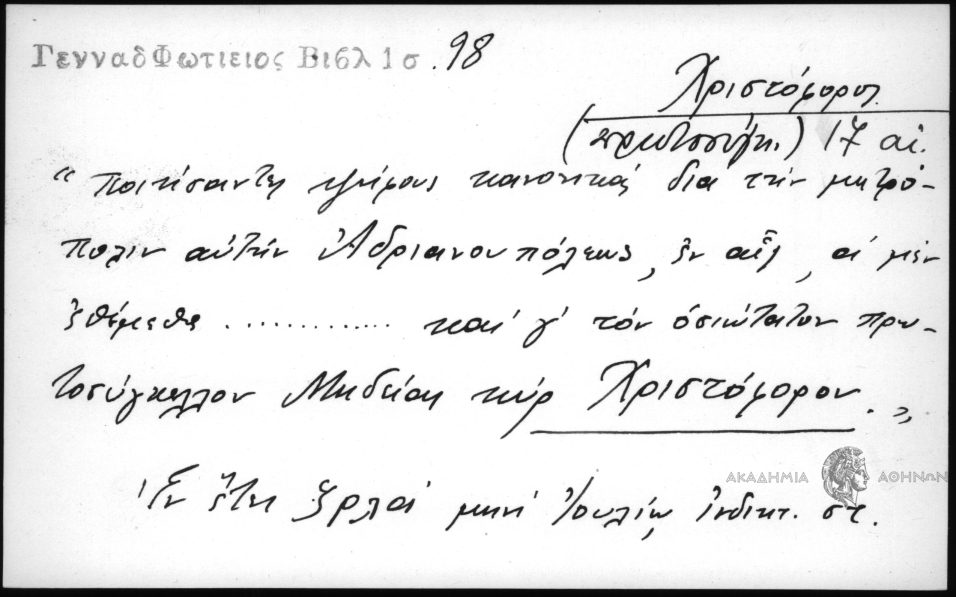 ΓενναδΦωτιειος Βιβλ 1 σ. 98
Χριστόφορος
(πρωτοσύγκ.) 17 αἰ.
"ποιήσαντες ψήφους κανονικάς διά τήν μητρό-
πολιν αὐτήν Ἀδριανουπόλεως, ἐν αἷς, αʹ μέν
ἐθέμεθα ............ καί γʹ τόν ὁσιώτατον πρω-
τοσύγκελλον Μηδείας κύρ Χριστόφορον."
Ἐν ἔτει ͵ζρλαʹ μηνί Ἰουλίῳ ἰνδικτ. στ.
ΑΚΑΔΗΜΙΑ ΑΘΗΝΩΝ